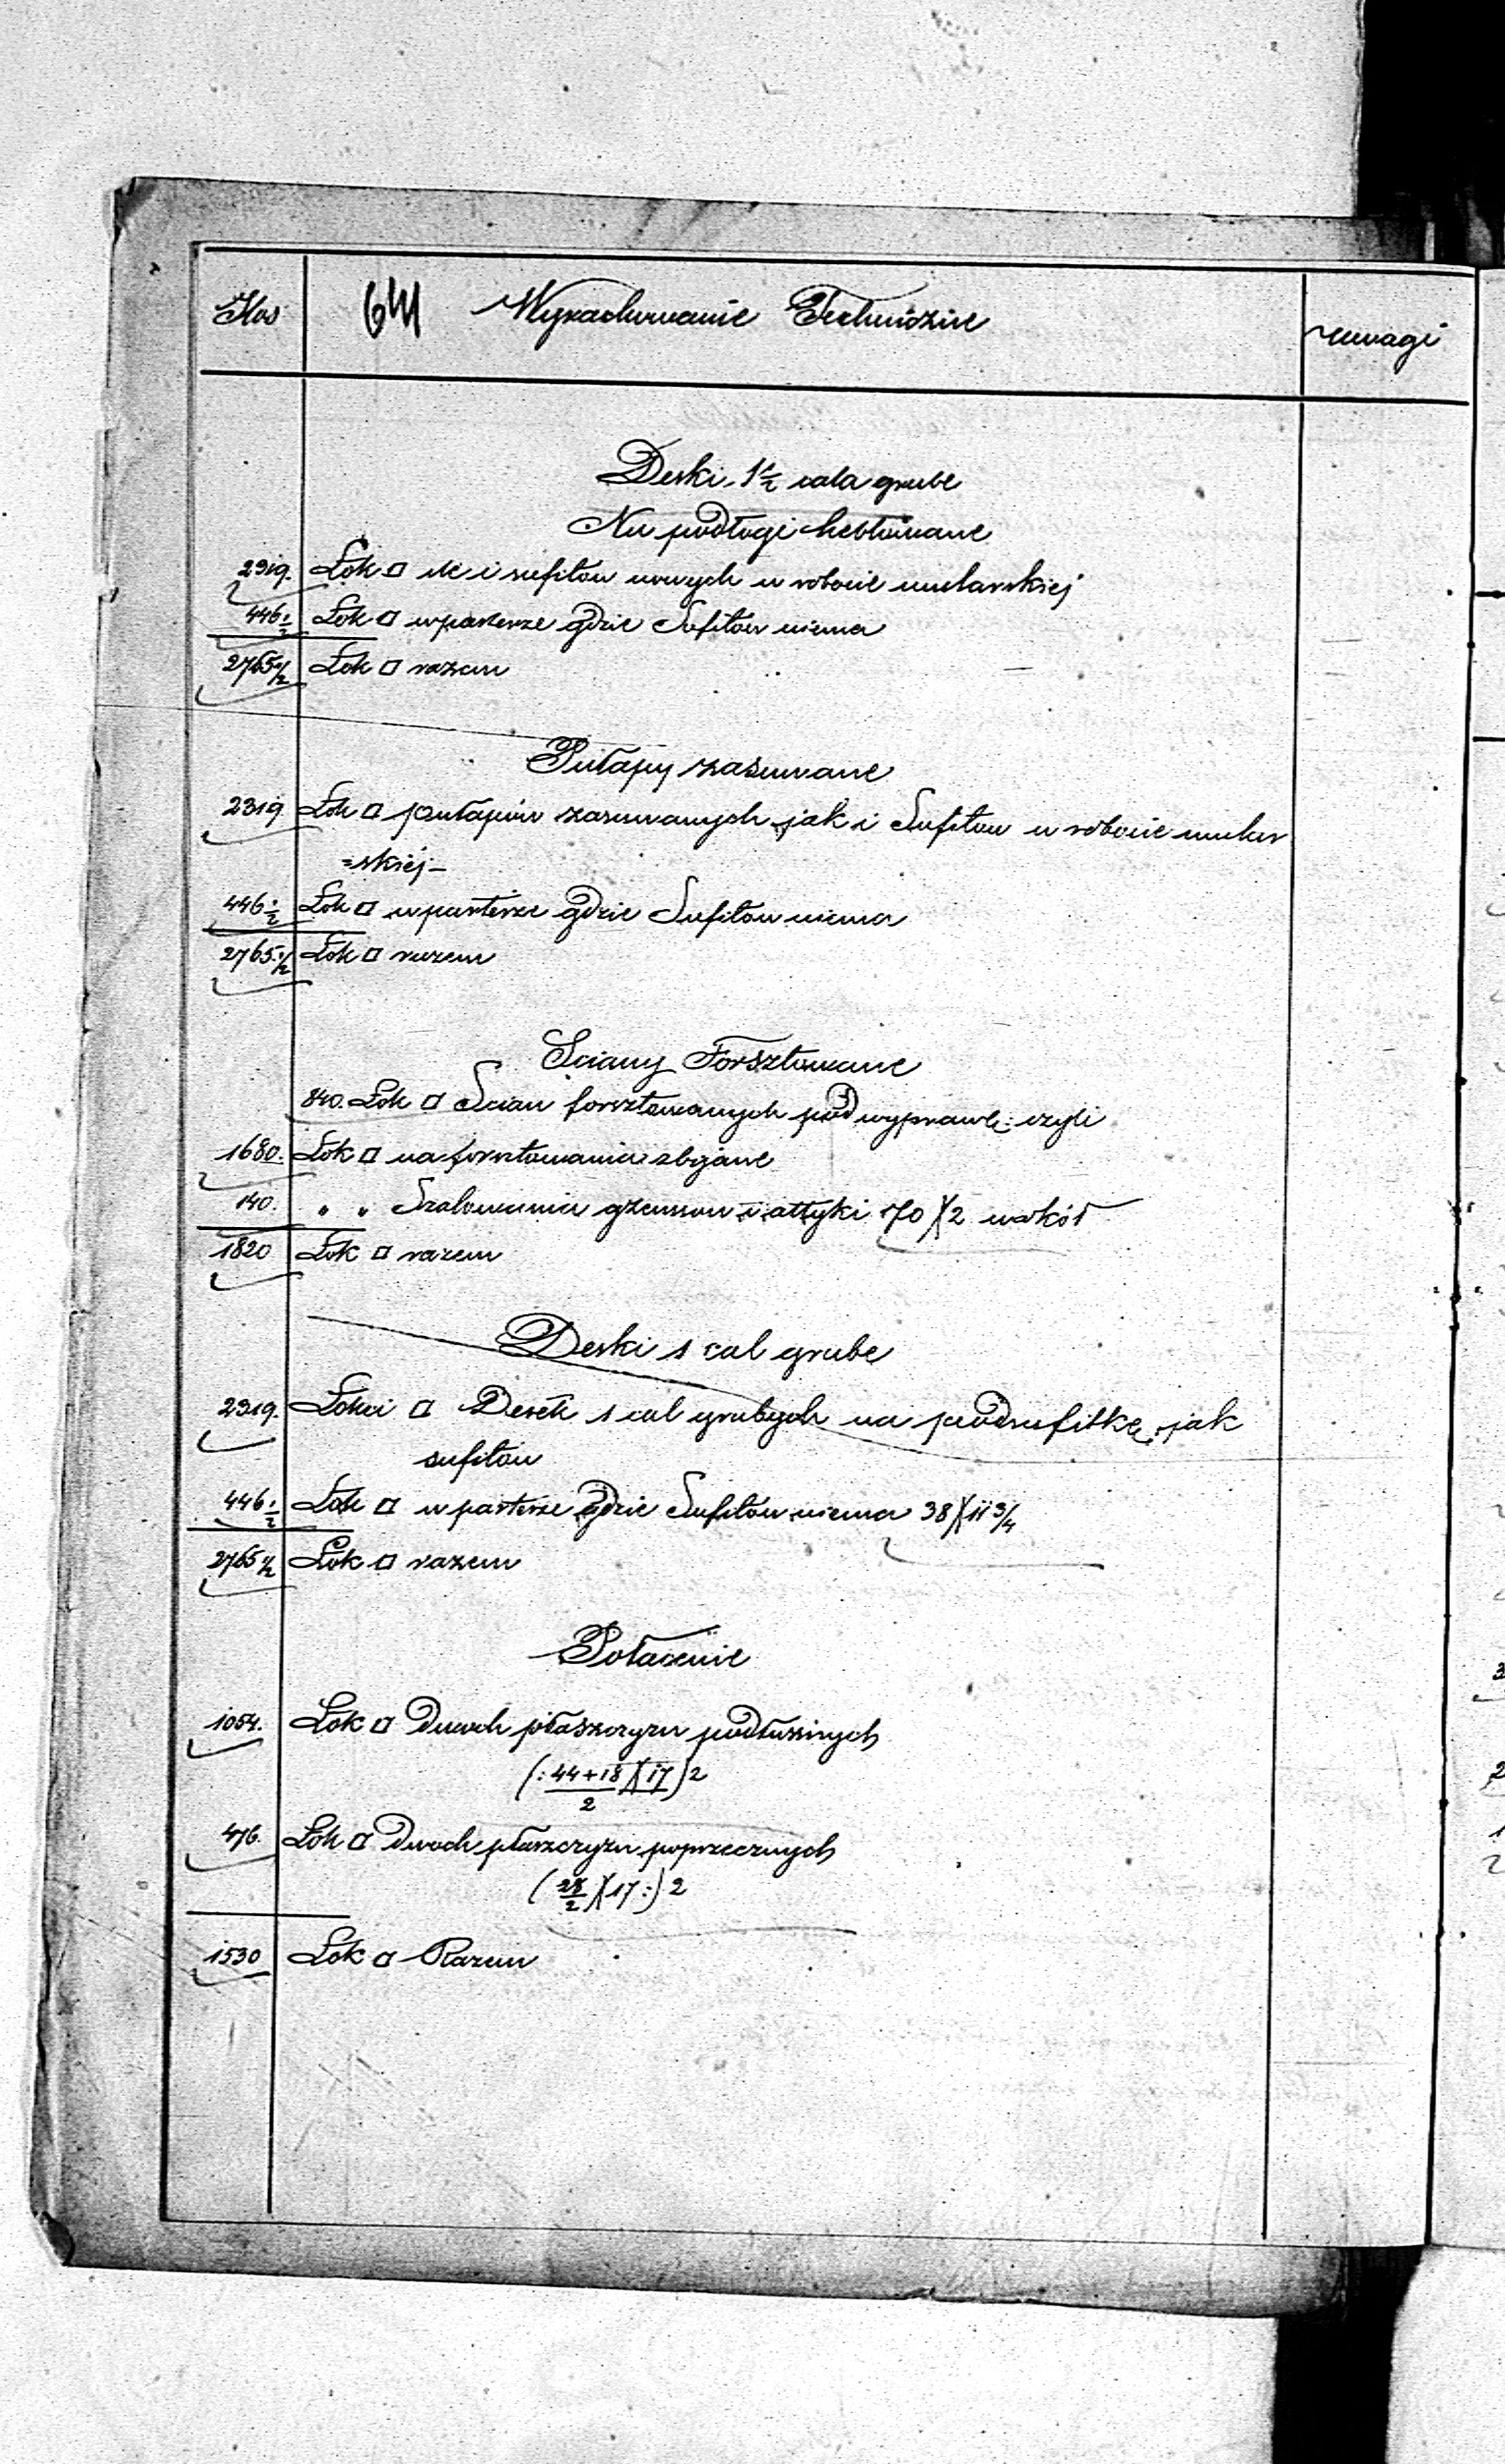 Ilos 641 Wyrachowanie Techniczne uwagi
Deski 1½ cala grube
Na podłogi heblowane
2319. Łok □ ile i sufitów nowych w robocie mularskiej
446½ Łok □ w parterze gdzie Sufitów niema
2765½ Łok □ razem
Pułapy zasuwane
2319 Łok □ pułapów zasuwanych jak i Sufitów w robocie mular
=skiéj –
446½ Łok □ w parterze gdzie Sufitów niema
2765½ Łok □ razem
Sciany Forsztowane
840. Łok □ Scian forsztowanych pod wyprawę: czyli
1680. Łok □ na forsztowania zbijane
140. " " Szalowania gzemsów i attyki 70)(2 wokół
1820 Łok □ razem
Deski 1 cal grube
2319. Łokci □ Desek 1 cal grubych na podsufitkę, jak
sufitów
446½ Łok □ w parterze gdzie Sufitów niema 38)(11¾
2765½ Łok □ razem
Połacenie
1054. Łok □ Dwoch płaszczyzn podłużnych
(: 44+18/2 )( 17 ) 2
476. Łok □ Dwoch płaszczyzn poprzecznych
( 28/2 )( 17 :) 2
1530 Łok □ Razem